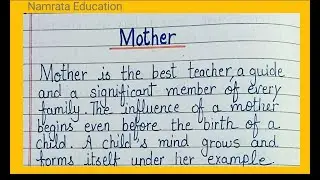 Namrata Education
Mother
Mother is the best teacher, a guide
and a significant member of every
family. The influence of a mother
begins even before the birth of a
child. A child's mind grows and
forms itself under her example.